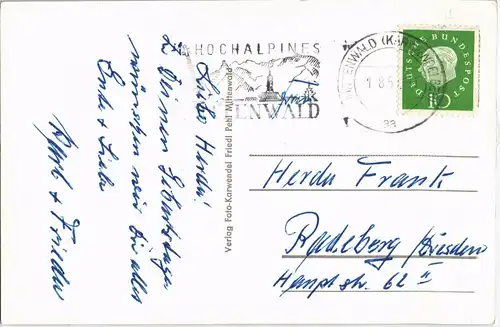 HOCHALPINES
ENWALD
ENWALD (KAR
1 8.5
aa
DEUTSCHE BUNDESPOST
10
Liebe Herda!
Zu Deinem Geburtstage
wünschen wir Dir alles
Gute & Liebe
Frieder
Verlag Foto-Karwendel Friedl Pehl Mittenwald
Herda Frank
Radeberg/Dresden
Hauptstr. 62 II